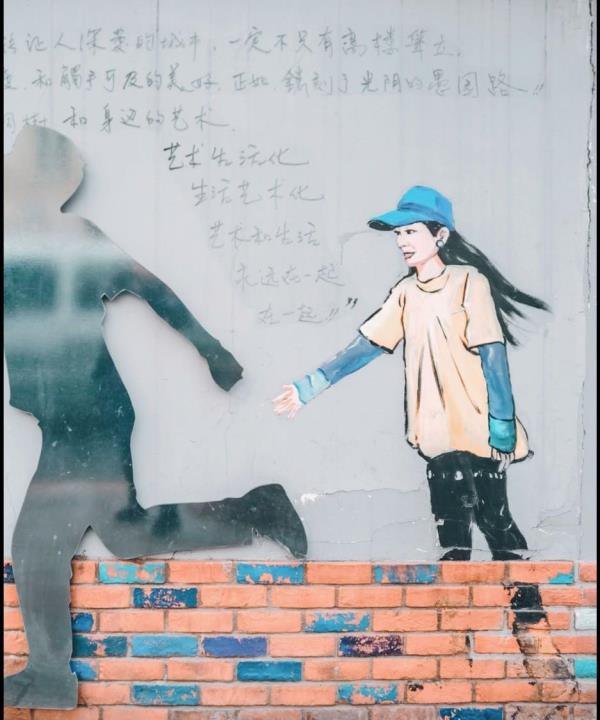 让人深爱的城市,一定不只有高楼耸立.
和触手可及的美好.正如.镌刻了光阴的愚园路"
树 和 身边的艺术.
艺术生活化
生活艺术化
艺术和生活
永远在一起
在一起!!"